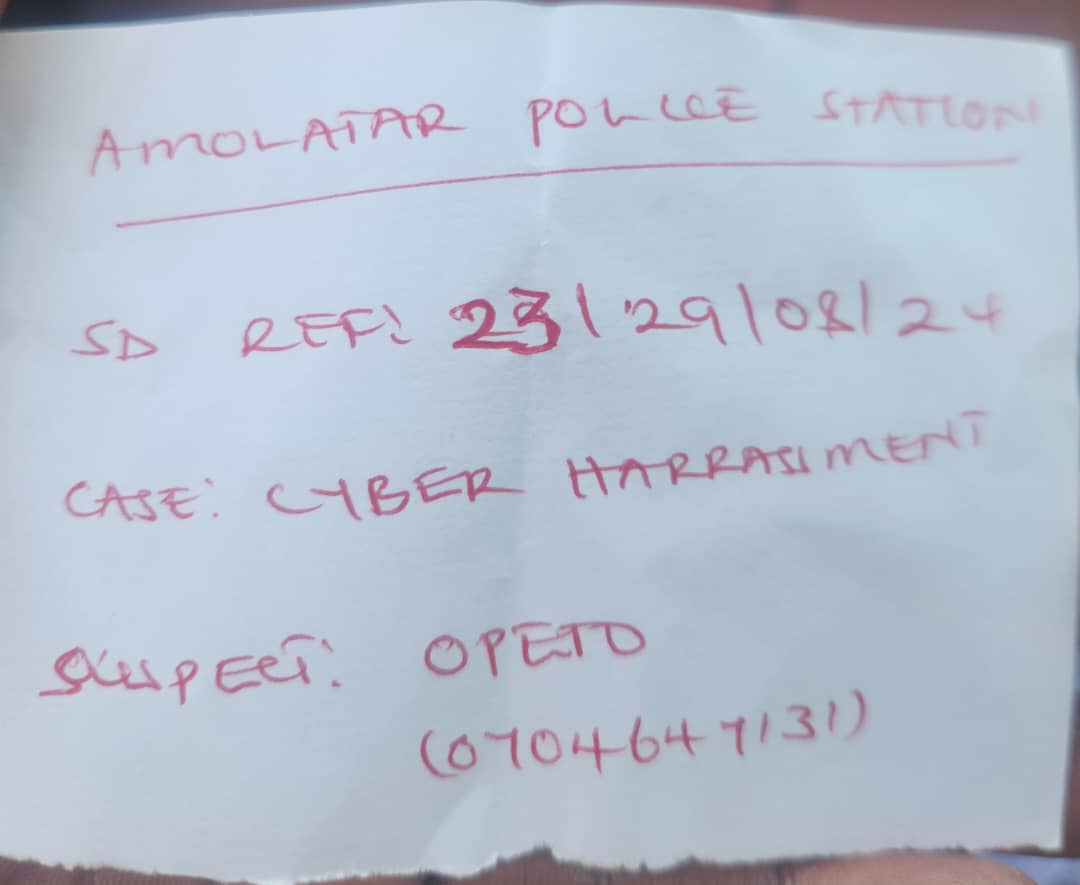 AMOLATAR POLICE STATION
SD REF: 23/29/08/24
CASE: CYBER HARRASSMENT
SUSPECT: OPETO
(0704647131)